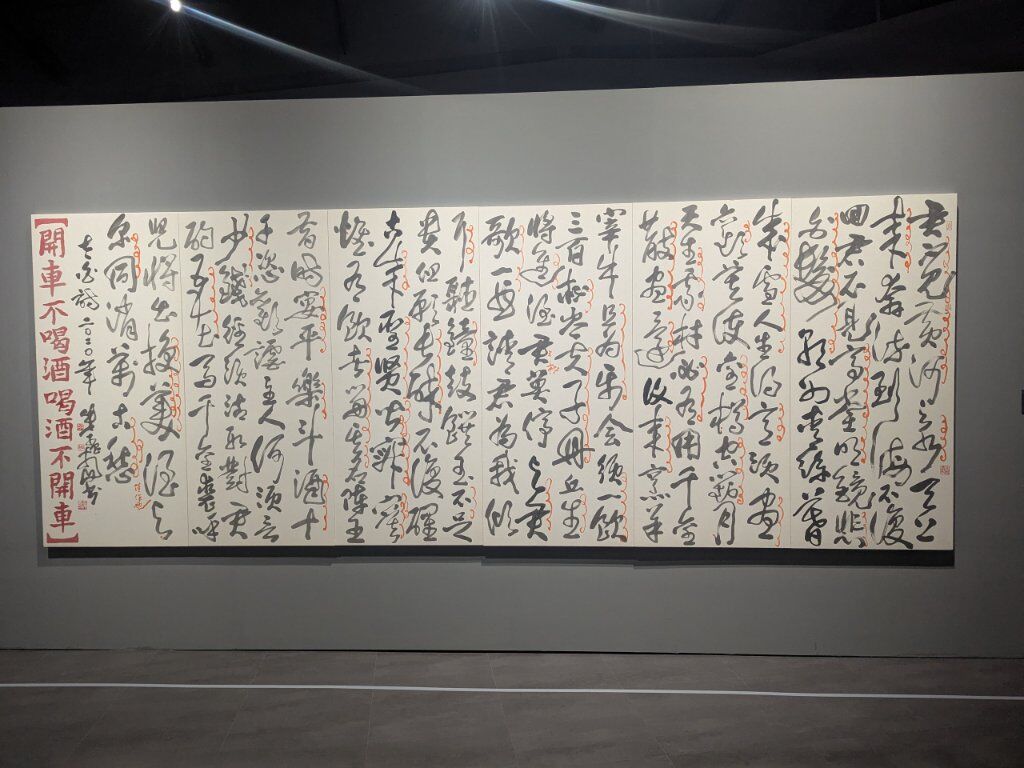 君不見黃河之水天上
來奔流到海不復
回君不見高堂明鏡悲
白髮朝如青絲暮
成雪人生得意須盡
歡莫使金樽空對月
天生我材必有用千金
散盡還復來烹羊
宰牛且為樂會須一飲
三百杯岑夫子丹丘生
將進酒君莫停與君
歌一曲請君為我傾
耳聽鐘鼓饌玉不足
貴但願長醉不復醒
古來聖賢皆寂寞
惟有飲者留其名陳王
昔時宴平樂斗酒十
千恣歡謔主人何須言
少錢徑須沽取對君
酌五花馬千金裘呼
兒將出換美酒與
爾同消萬古愁
太白詩二〇二〇年
【開車不喝酒喝酒不開車】